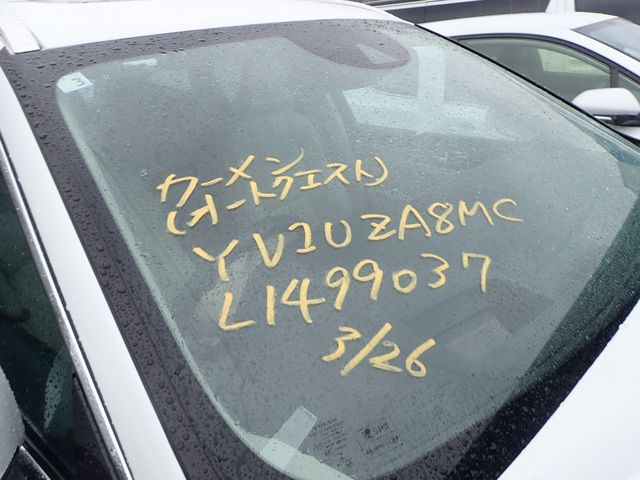 カーメン
(オートクエスト)
YV1UZA8MC
L1499037
3/26
3